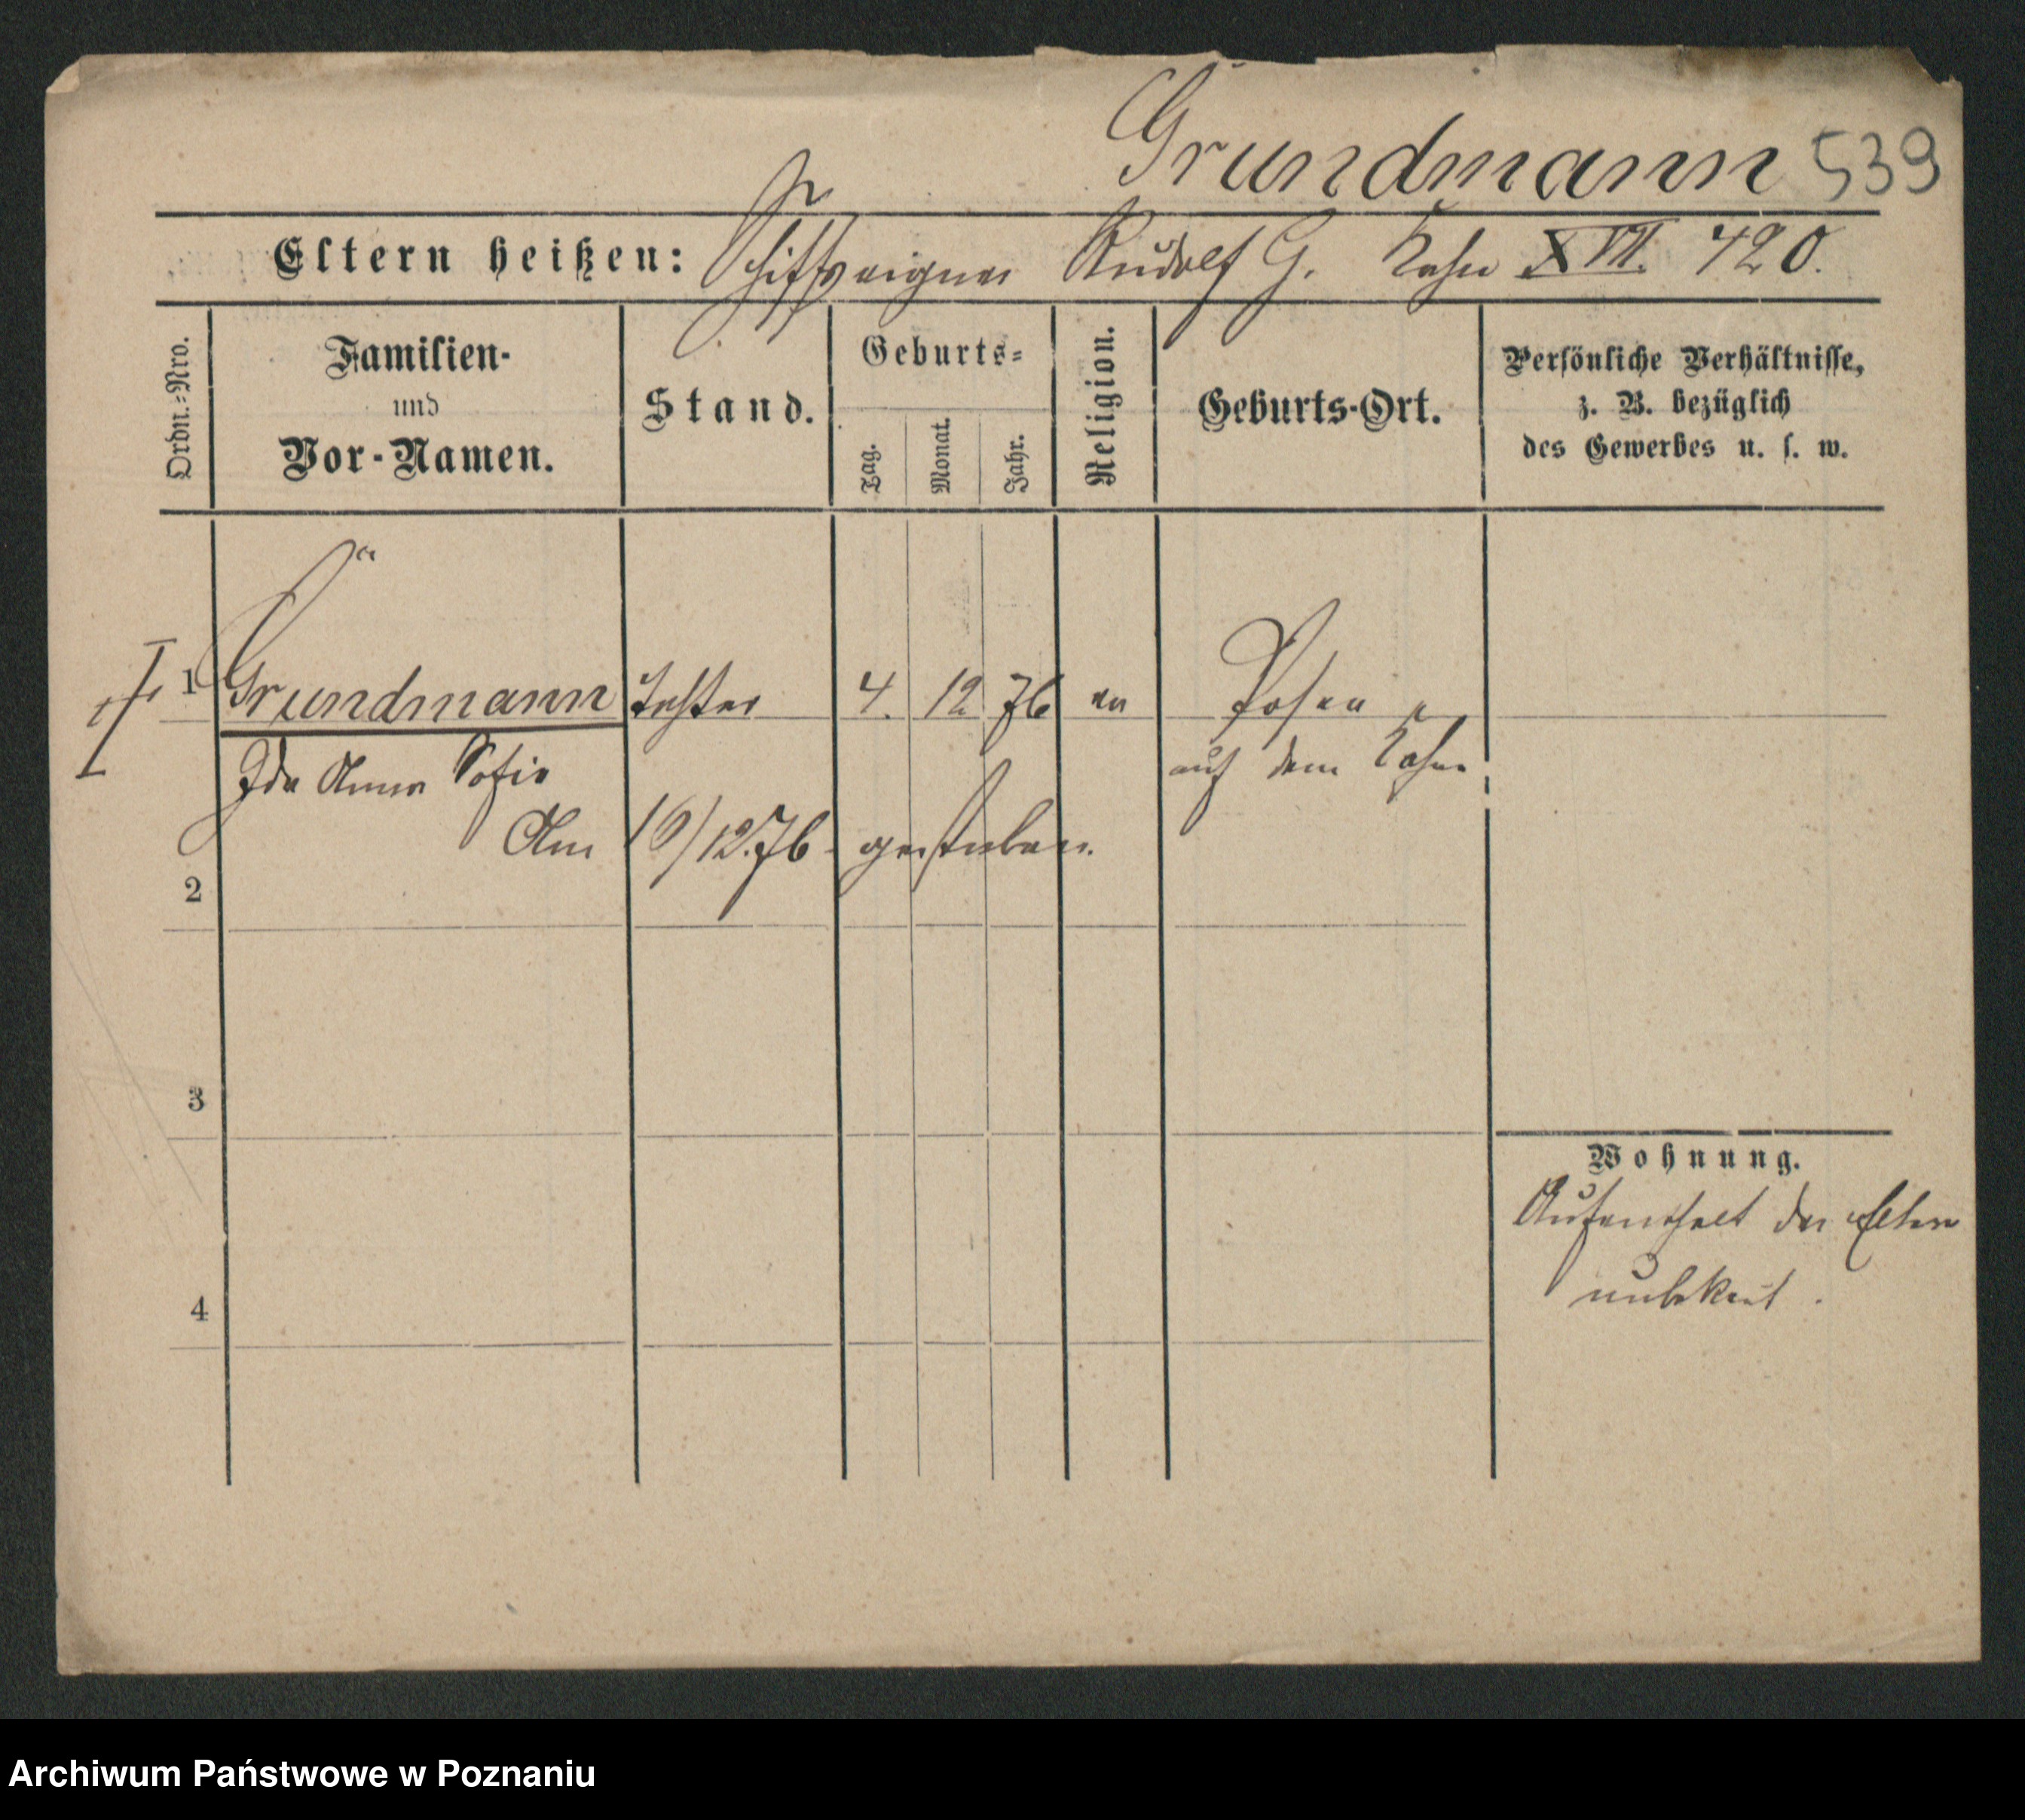 Grundmann 539
Eltern heißen: Schiffseigner Rudolf G. Kahn XVII. 420.
Ordn.-Nro.
Familien- und Vor-Namen.
Stand.
Geburts-
Tag. Monat. Jahr.
Religion.
Geburts-Ort.
Persönliche Verhältnisse, z. B. bezüglich des Gewerbes u. s. w.
1 Grundmann Tochter 4. 12 76 ev Posen
Ida Anna Sofie auf dem Kahn
Am 16/12.76 gestorben.
2
3
Wohnung.
Aufenthalt der Eltern
unbekant.
4
Archiwum Państwowe w Poznaniu